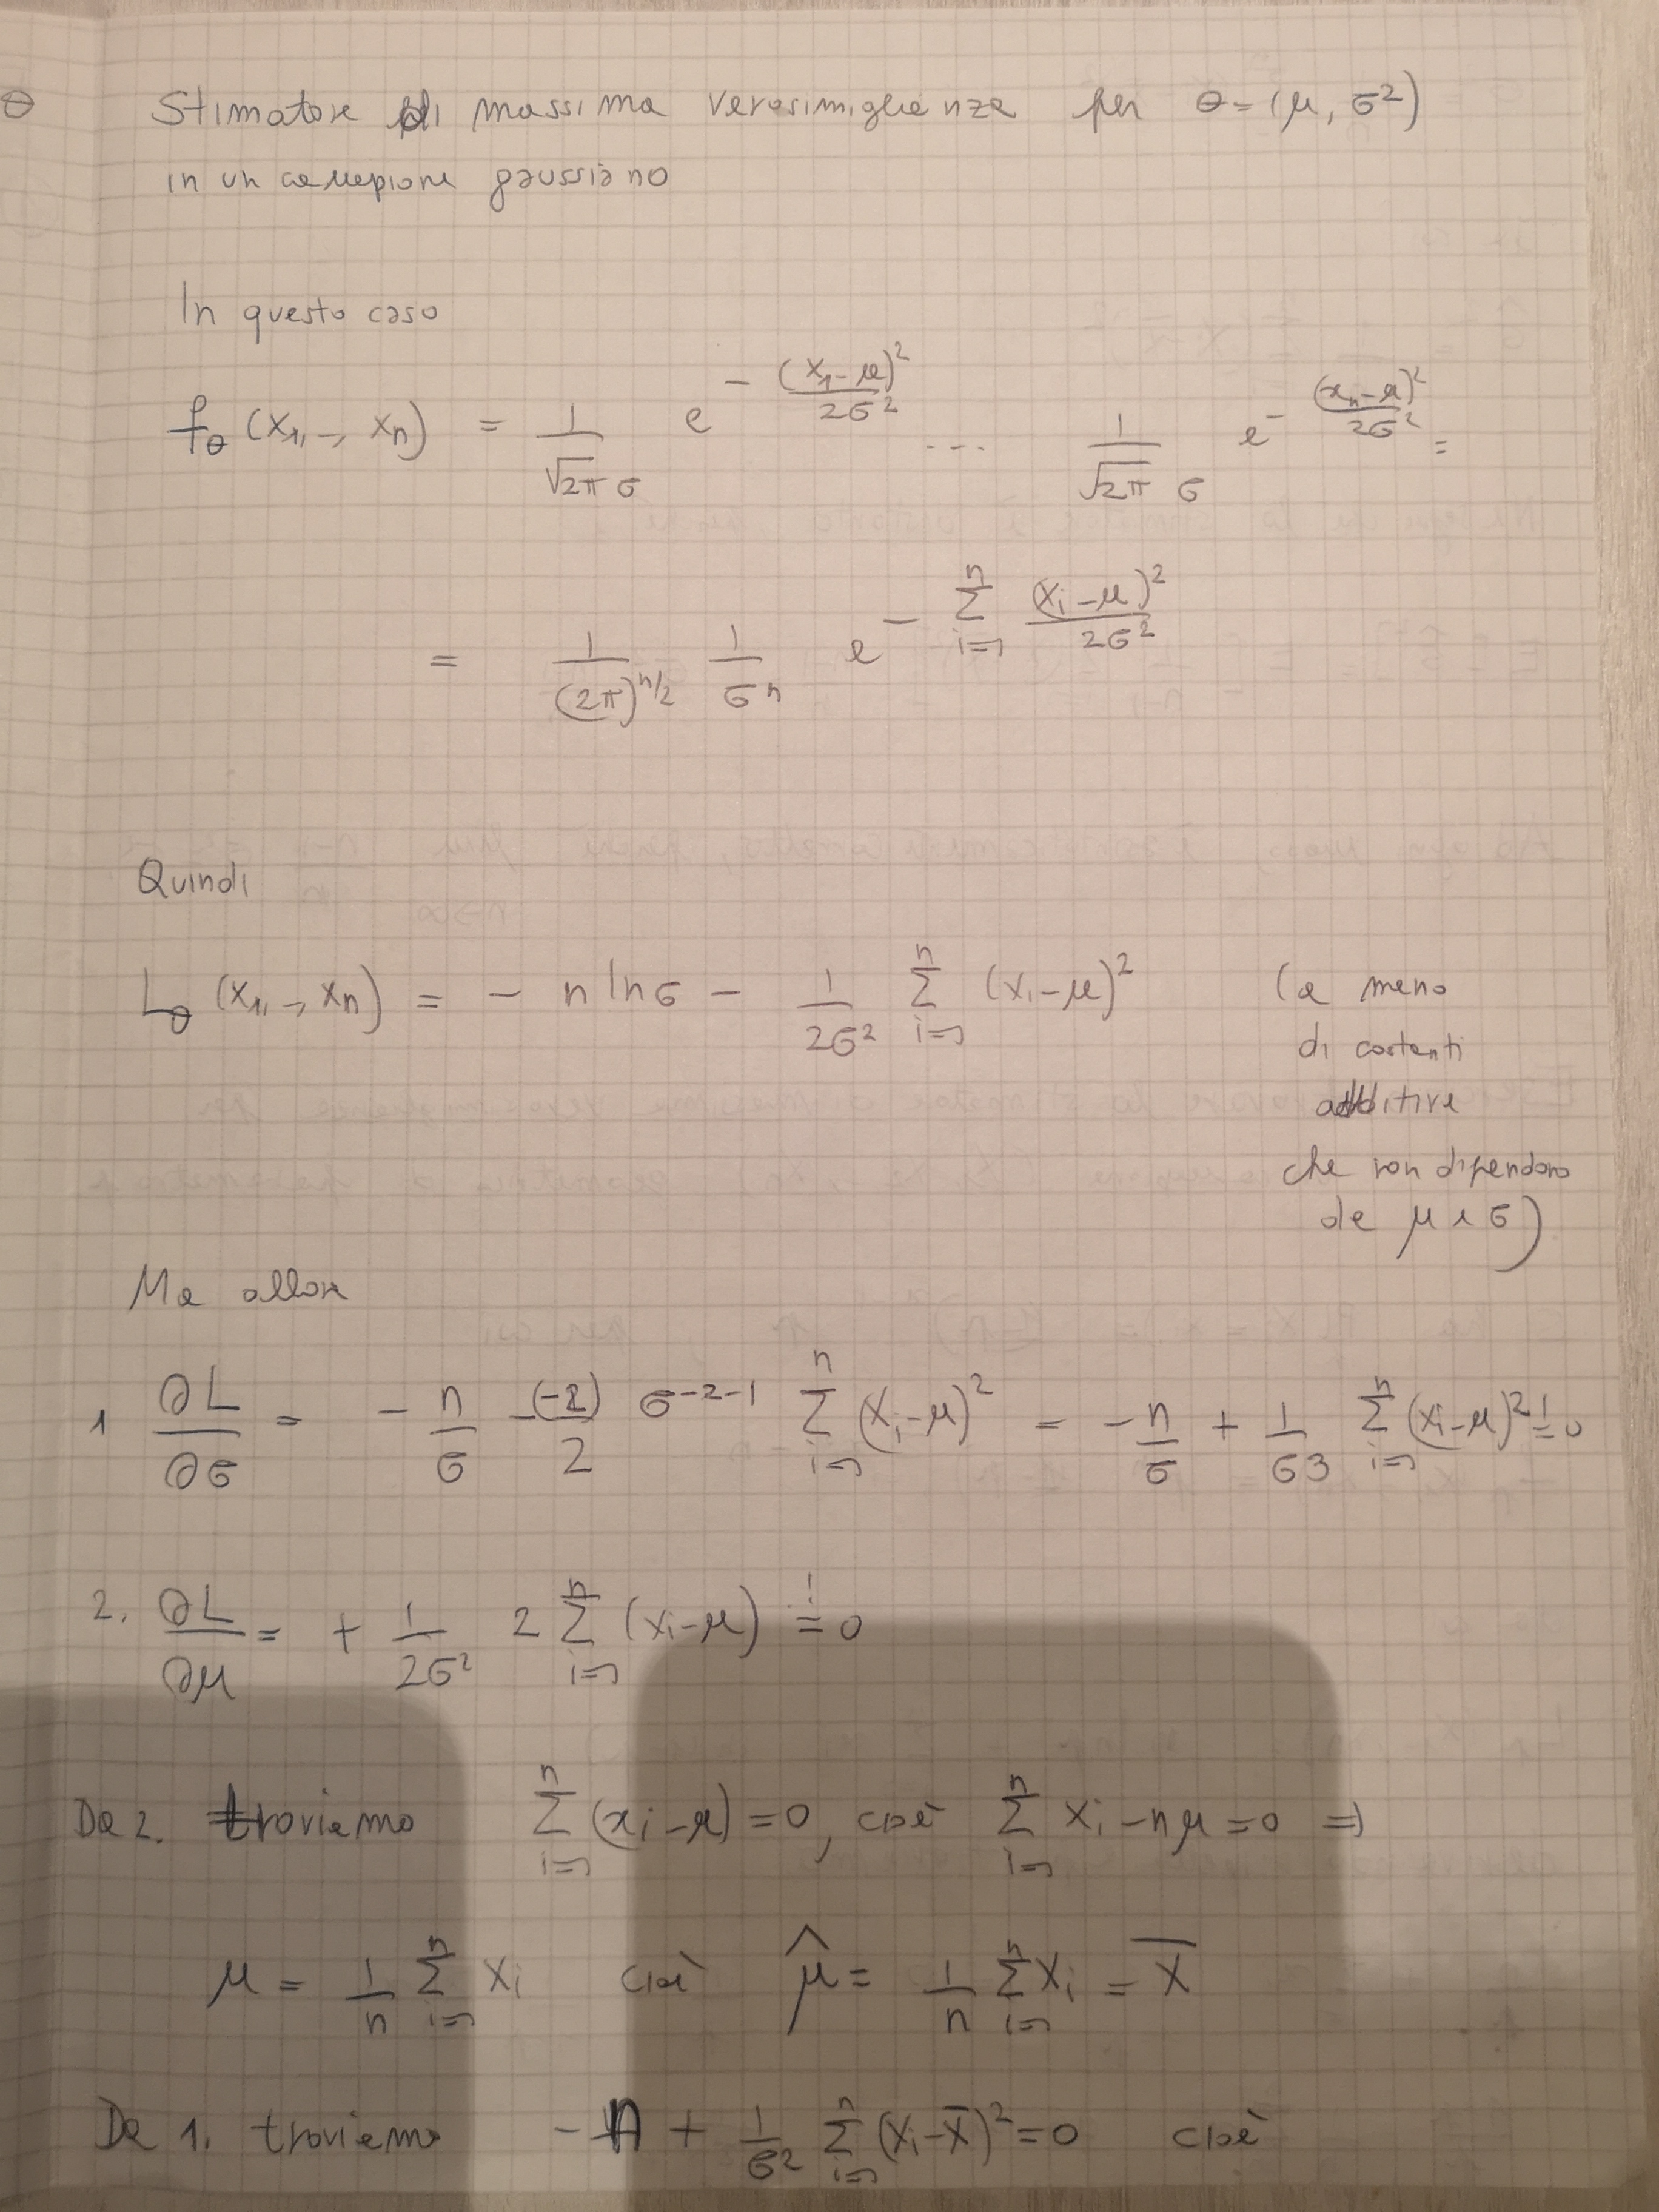 θ Stimatore di massima verosimiglianza per θ = (μ, σ²)
in un campione gaussiano
In questo caso
f_θ (x₁, –, xₙ) = 1/(√2π σ) e^{– (x₁–μ)²/2σ²} ... 1/(√2π σ) e^{– (xₙ–μ)²/2σ²} =
= 1/(2π)^{n/2} 1/σⁿ e^{– Σ_{i=1}^{n} (xᵢ–μ)²/2σ²}
Quindi
L_θ (x₁, –, xₙ) = – n ln σ – 1/2σ² Σ_{i=1}^{n} (xᵢ–μ)² (a meno
di costanti
additive
che non dipendono
da μ e σ)
Ma allora
1 ∂L/∂σ = – n/σ – (–2)/2 σ^{–2–1} Σ_{i=1}^{n} (xᵢ–μ)² = – n/σ + 1/σ3 Σ_{i=1}^{n} (xᵢ–μ)² =! 0
2. ∂L/∂μ = + 1/2σ² 2 Σ_{i=1}^{n} (xᵢ–μ) =! 0
Da 2. troviamo Σ_{i=1}^{n} (xᵢ–μ) = 0, cioè Σ_{i=1}^{n} xᵢ – nμ = 0 ⇒
μ = 1/n Σ_{i=1}^{n} xᵢ cioè μ̂ = 1/n Σ_{i=1}^{n} Xᵢ = X̄
Da 1. troviamo – n + 1/σ² Σ_{i=1}^{n} (xᵢ–x̄)² = 0 cioè